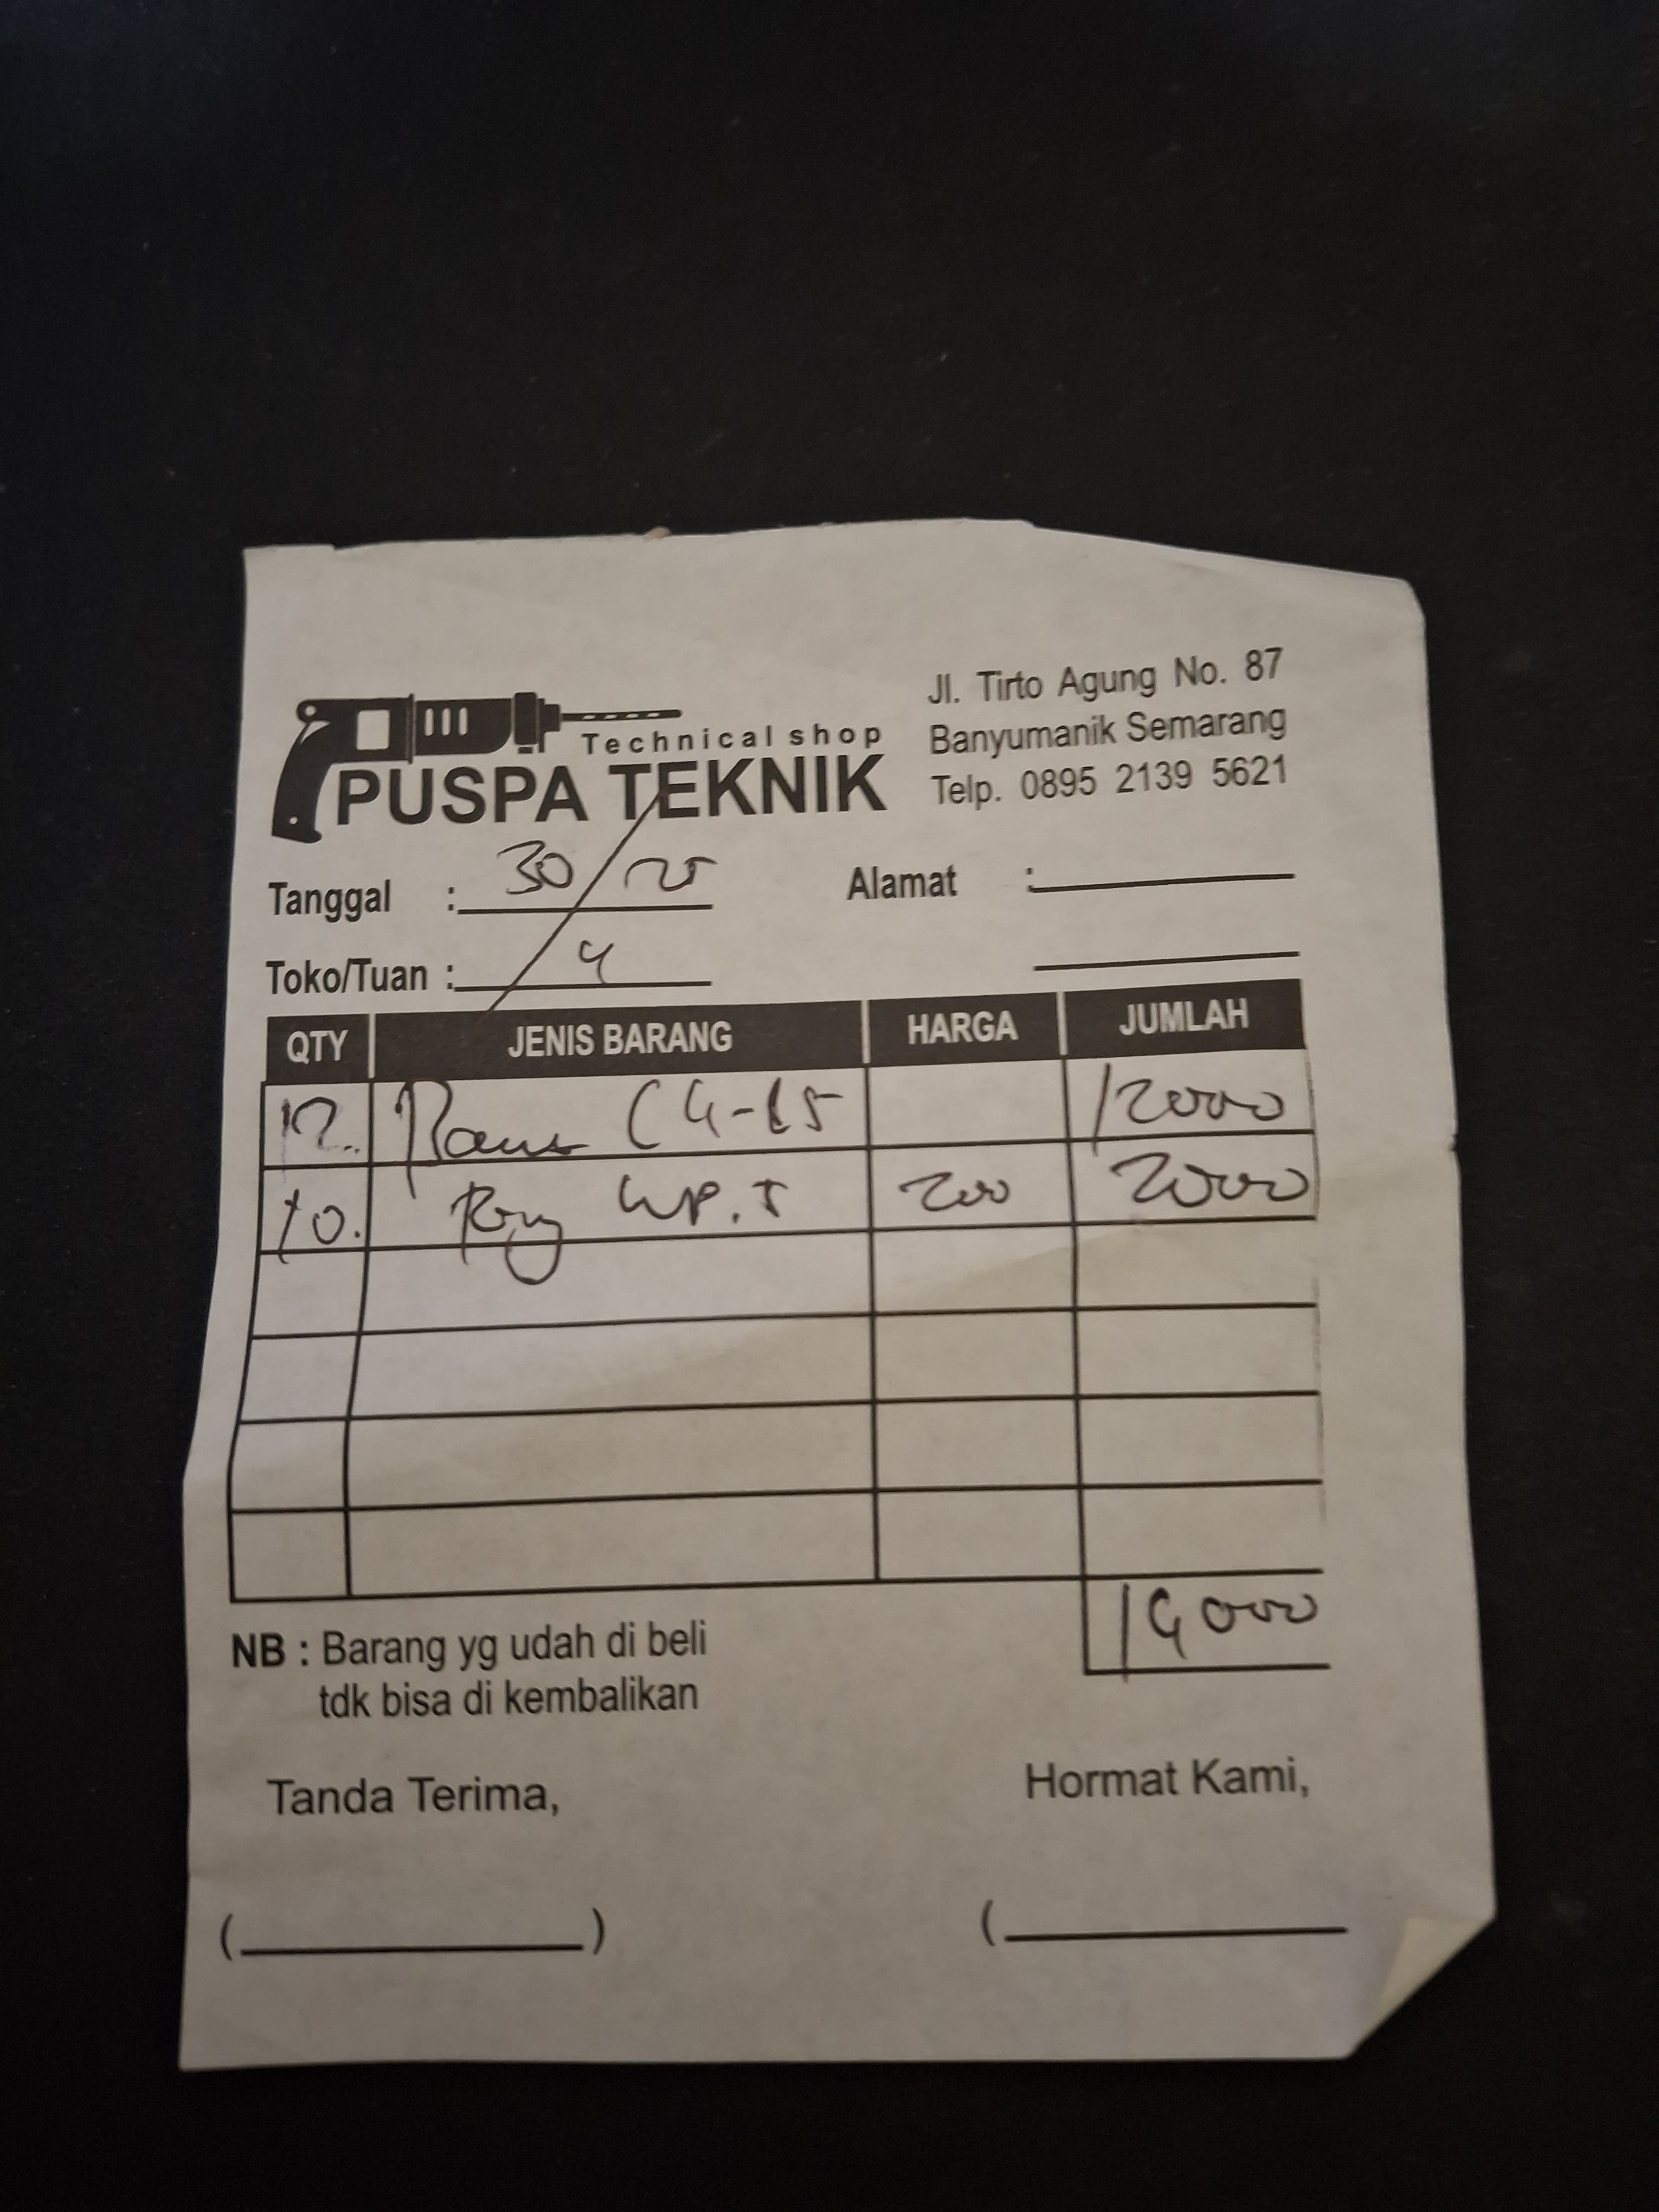 Technical shop
PUSPA TEKNIK
Jl. Tirto Agung No. 87
Banyumanik Semarang
Telp. 0895 2139 5621
Tanggal : 30/25
Alamat :
Toko/Tuan : 4
QTY JENIS BARANG HARGA JUMLAH
12. 12000
10. Ring WP. 5 200 2000
14000
NB : Barang yg udah di beli
tdk bisa di kembalikan
Tanda Terima,
Hormat Kami,